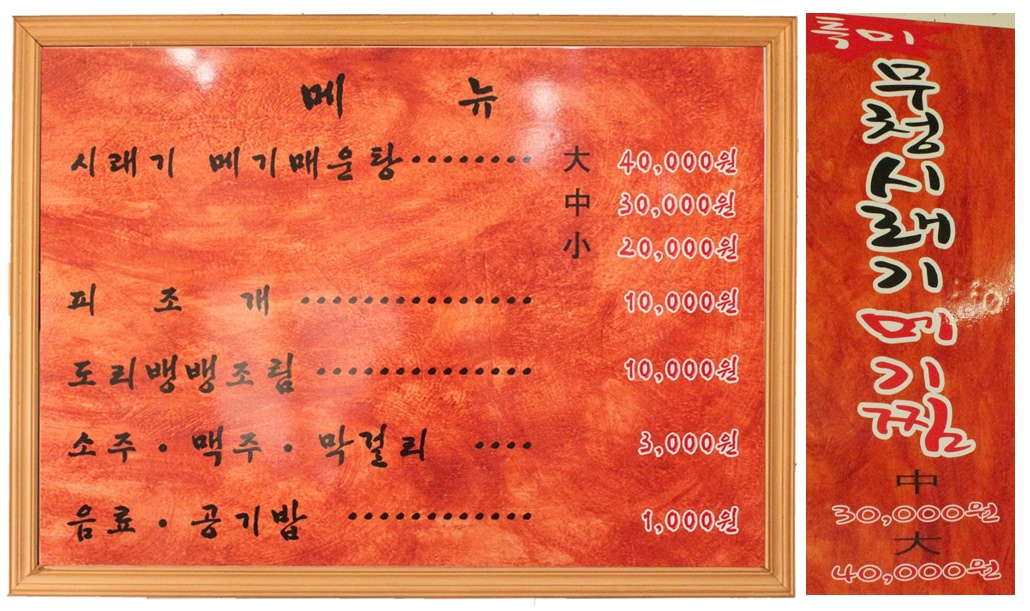 메 뉴
시래기 메기매운탕 ········ 大 40,000원
中 30,000원
小 20,000원
피 조 개 ··············· 10,000원
도리뱅뱅조림 ·············· 10,000원
소주 · 맥주 · 막걸리 ···· 3,000원
음료 · 공기밥 ············ 1,000원
특미
무청시래기메기찜
中
30,000원
大
40,000원